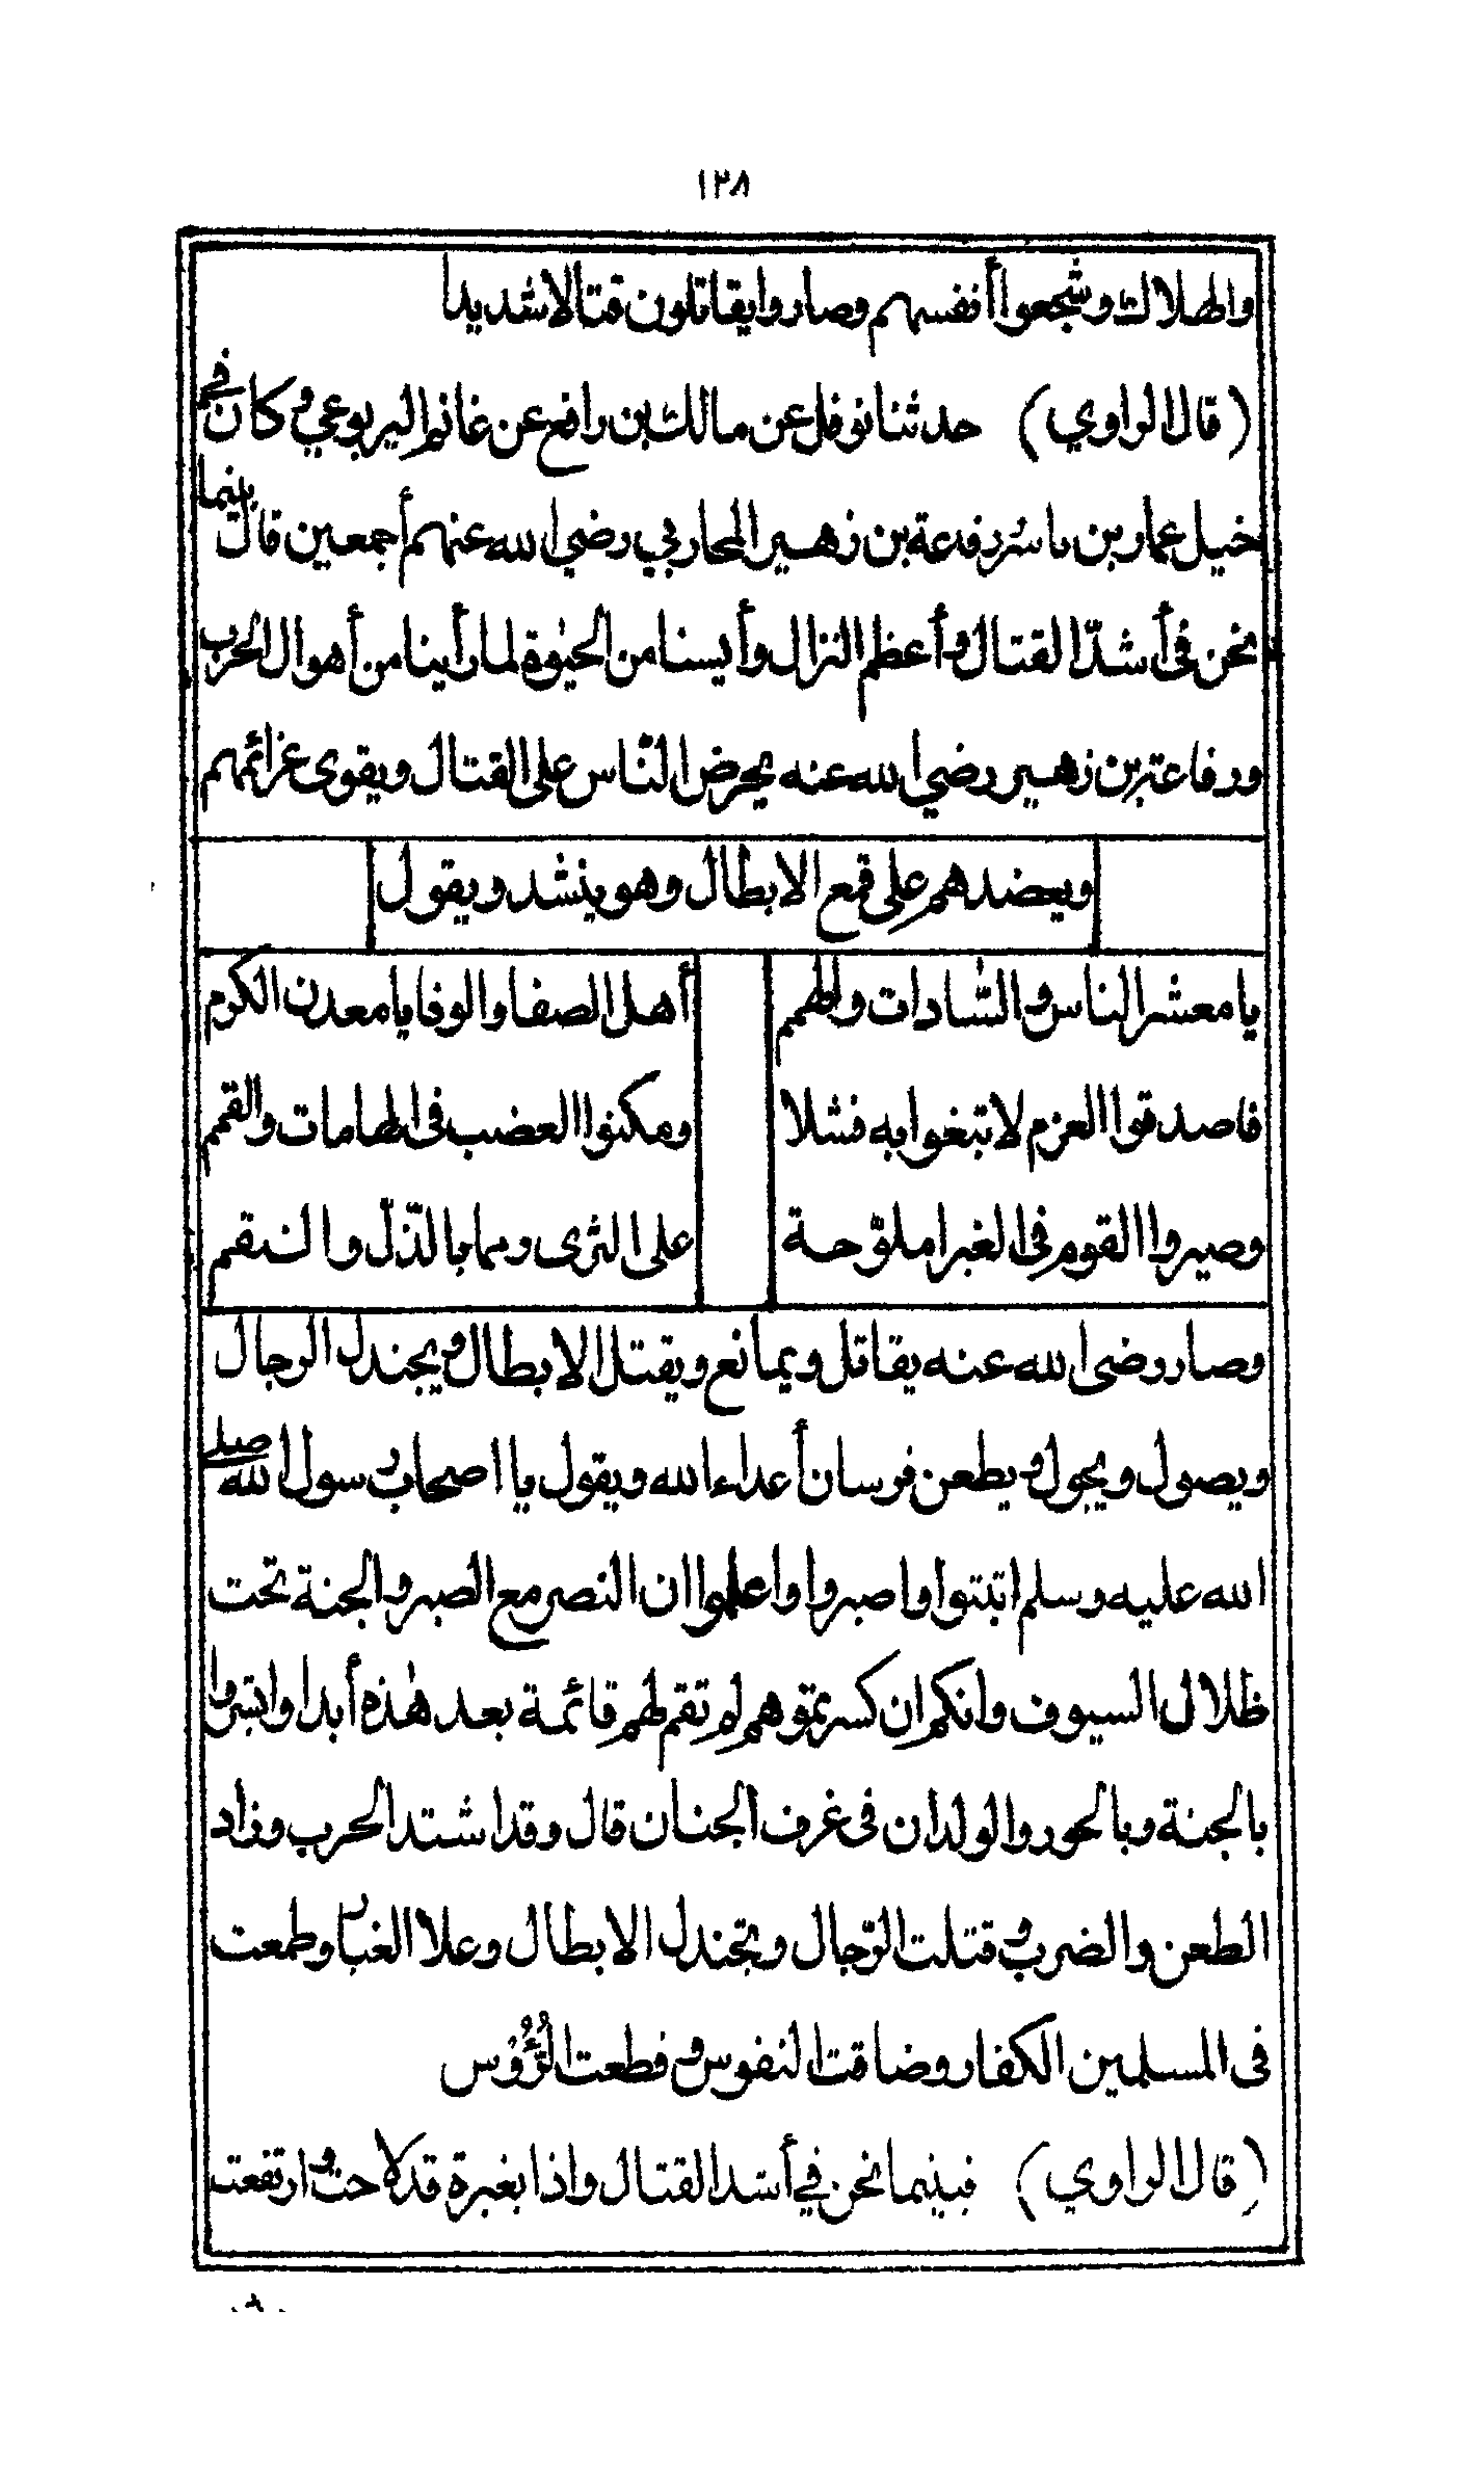 ١٢٨
والهلاك وشجعوا أنفسهم وصاروا يقاتلون قتالا شديدا
(قال الراوي) حدثنا نوفل عن مالك بن رافع عن غانم اليربوعي وكان في
خيل عمار بن ياسر رفدعة بن زهير المحاربي رضي الله عنهم أجمعين قال بينما
نحن فى أشدّ القتال وأعظم النزال وأيسنا من الحيٰوة لما رأينا من أهوال الحرب
ورفاعة بن زهير رضي الله عنه يحرض النّاس على القتال ويقوى عزائمهم
ويعضدهم على قمع الابطال وهو ينشد ويقول
يا معشر الناس والسّادات والهمم أهل الصفا والوفا يا معدن الكرم
فاصدقوا العزم لا تبغوا به فشلا ومكنوا العضب فى الهامات والقمم
وصيروا القوم فى الغبرا ملوّحة على الثرى ومابا بالذّلّ والنقم
وصار رضى الله عنه يقاتل ويمانع ويقتل الابطال ويجندل الرجال
ويصول ويجول ويطعن فرسان أعداء الله ويقول يا اصحاب رسول الله صلى
الله عليه وسلم اثبتوا واصبروا واعلموا ان النصر مع الصبر والجنة تحت
ظلال السيوف وانكم ان كسرتموهم لم تقم لهم قائمة بعد هٰذه أبدا وابشروا
بالجنة وبالحور والولدان فى غرف الجنان قال وقد اشتد الحرب وزاد
الطعن والضرب وقتلت الرّجال وتجندل الابطال وعلا الغبار وطمعت
فى المسلمين الكفار وضاقت النفوس وقطعت الرُّؤُوس
(قال الراوي) فبينما نحن في أشد القتال واذا بغبرة قد لاحت وارتفعت